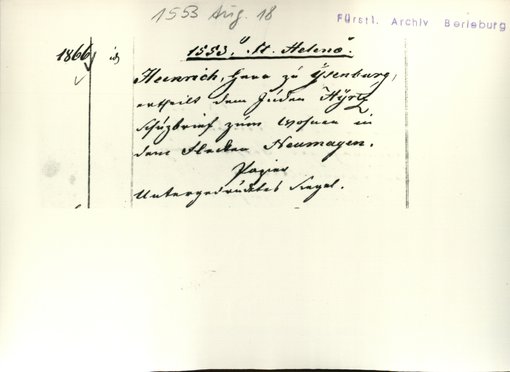 1553 Aug. 18
Fürstl. Archiv Berleburg
1866
1553, St. Helena.
Heinrich, Herr zu Ysenburg,
ertheilt dem Juden Hÿrtz
Schützbrief zum Wohnen in
dem Flecken Neumagen.
Papier
Untergedrücktes Siegel.